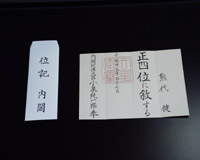 位記 内閣
熊代 健
正四位に叙する
内閣総理大臣小泉純一郎奉